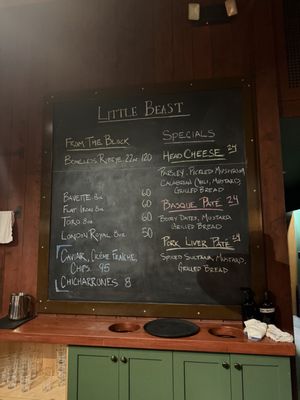 LITTLE BEAST
FROM THE BLOCK
BONELESS RIBEYE 22oz 120
BAVETTE 8oz 60
FLAT IRON 8oz 60
TORO 8oz 60
LONDON ROYAL 8oz 50
CAVIAR, CRÈME FRAÎCHE,
CHIPS 95
CHICHARRONES 8
SPECIALS
HEAD CHEESE 24
PARSLEY, PICKLED MUSTROOM
CALABRIAN CHILI, MUSTARD,
GRILLED BREAD
BASQUE PATÉ 24
DATES, MUSTARD,
GRILLED BREAD
PORK LIVER PATÉ 24
SPICED SULTANA, MUSTARD,
GRILLED BREAD